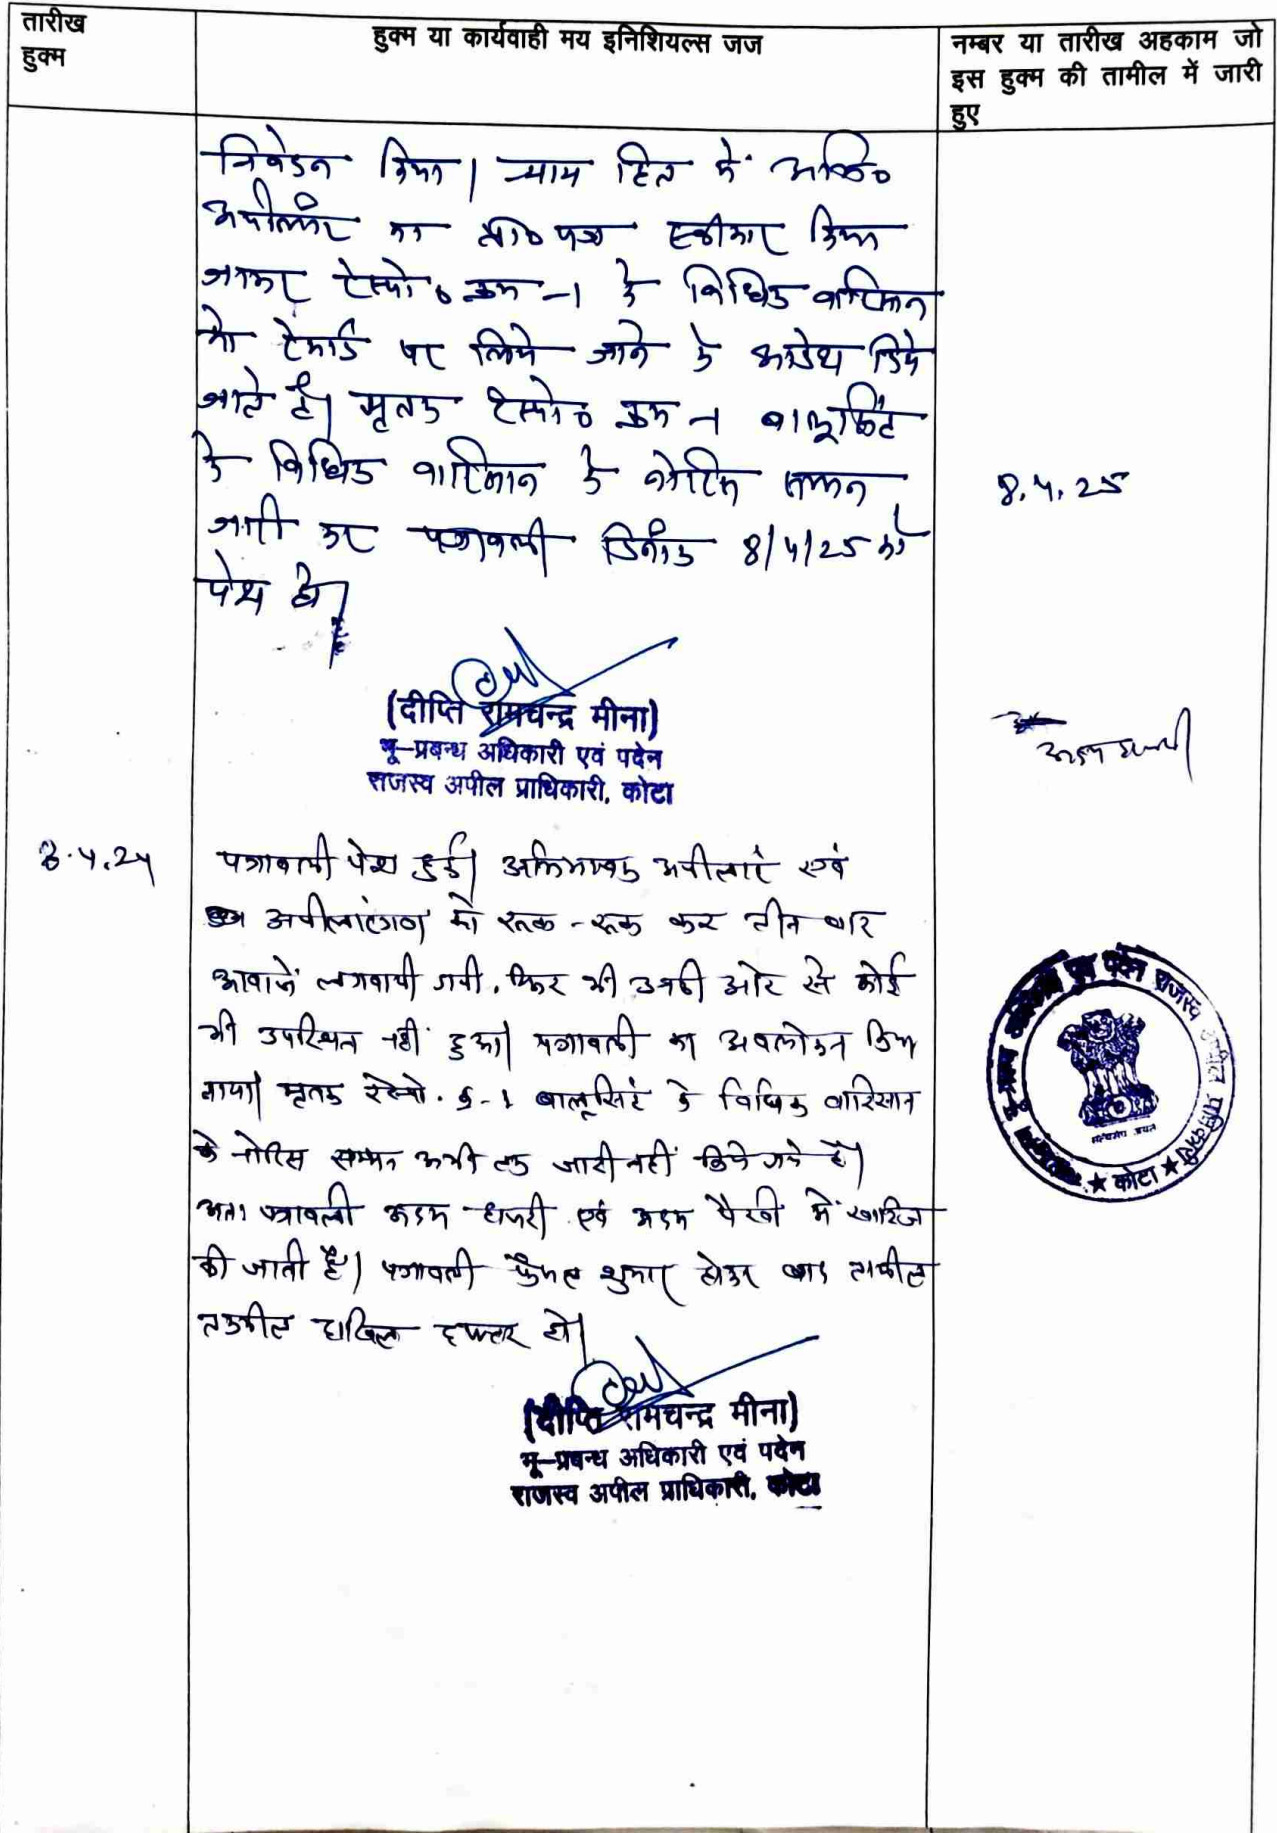 तारीख
हुक्म
हुक्म या कार्यवाही मय इनिशियल्स जज
नम्बर या तारीख अहकाम जो
इस हुक्म की तामील में जारी
हुए
निवेदन किया। न्याय हित में अभि०
अपीलांट का प्रा० पत्र स्वीकार किया
जाकर रेस्पो० क्रम -1 के विधिक वारिसान
को रेकार्ड पर लिये जाने के आदेश दिये
जाते है। मृतक रेस्पो० क्रम -1 बालूसिंह
के विधिक वारिसान के नोटिस सम्मन
जारी कर पत्रावली दिनांक 8/4/25 को
पेश हो।
8.4.25
(दीप्ति रामचन्द्र मीना)
भू-प्रबन्ध अधिकारी एवं पदेन
राजस्व अपील प्राधिकारी, कोटा
8.4.25
पत्रावली पेश हुई। अभिभाषक अपीलांट एवं
अपीलांटगण को रूक-रूक कर तीन बार
आवाजें लगवायी गयी. फिर भी उनकी ओर से कोई
भी उपस्थित नहीं हुआ। पत्रावली का अवलोकन किया
गया। मृतक रेस्पो. क्र-1 बालूसिंह के विधिक वारिसान
के नोटिस सम्मन अभी तक जारी नहीं किये गये है।
अतः पत्रावली अदम हाजरी एवं अदम पैरवी में खारिज
की जाती है। पत्रावली फैसल शुमार होकर बाद तामील
तकमील दाखिल दफ्तर हो।
(दीप्ति रामचन्द्र मीना)
भू-प्रबन्ध अधिकारी एवं पदेन
राजस्व अपील प्राधिकारी, कोटा
एवं पदेन राजस्व अपील प्राधिकारी
सत्यमेव जयते
★ कोटा ★